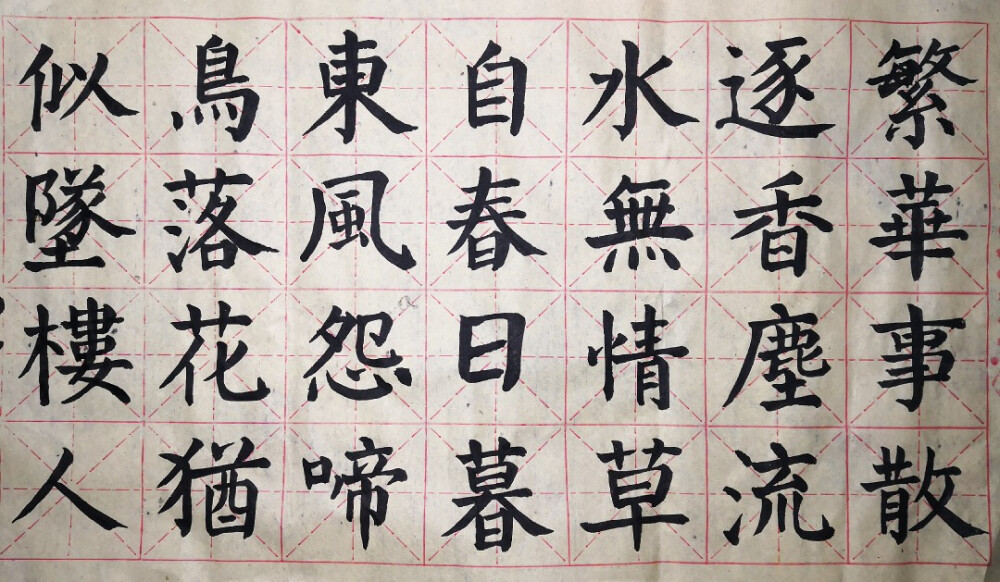 繁華事散
逐香塵流
水無情草
自春日暮
東風怨啼
鳥落花猶
似墜樓人